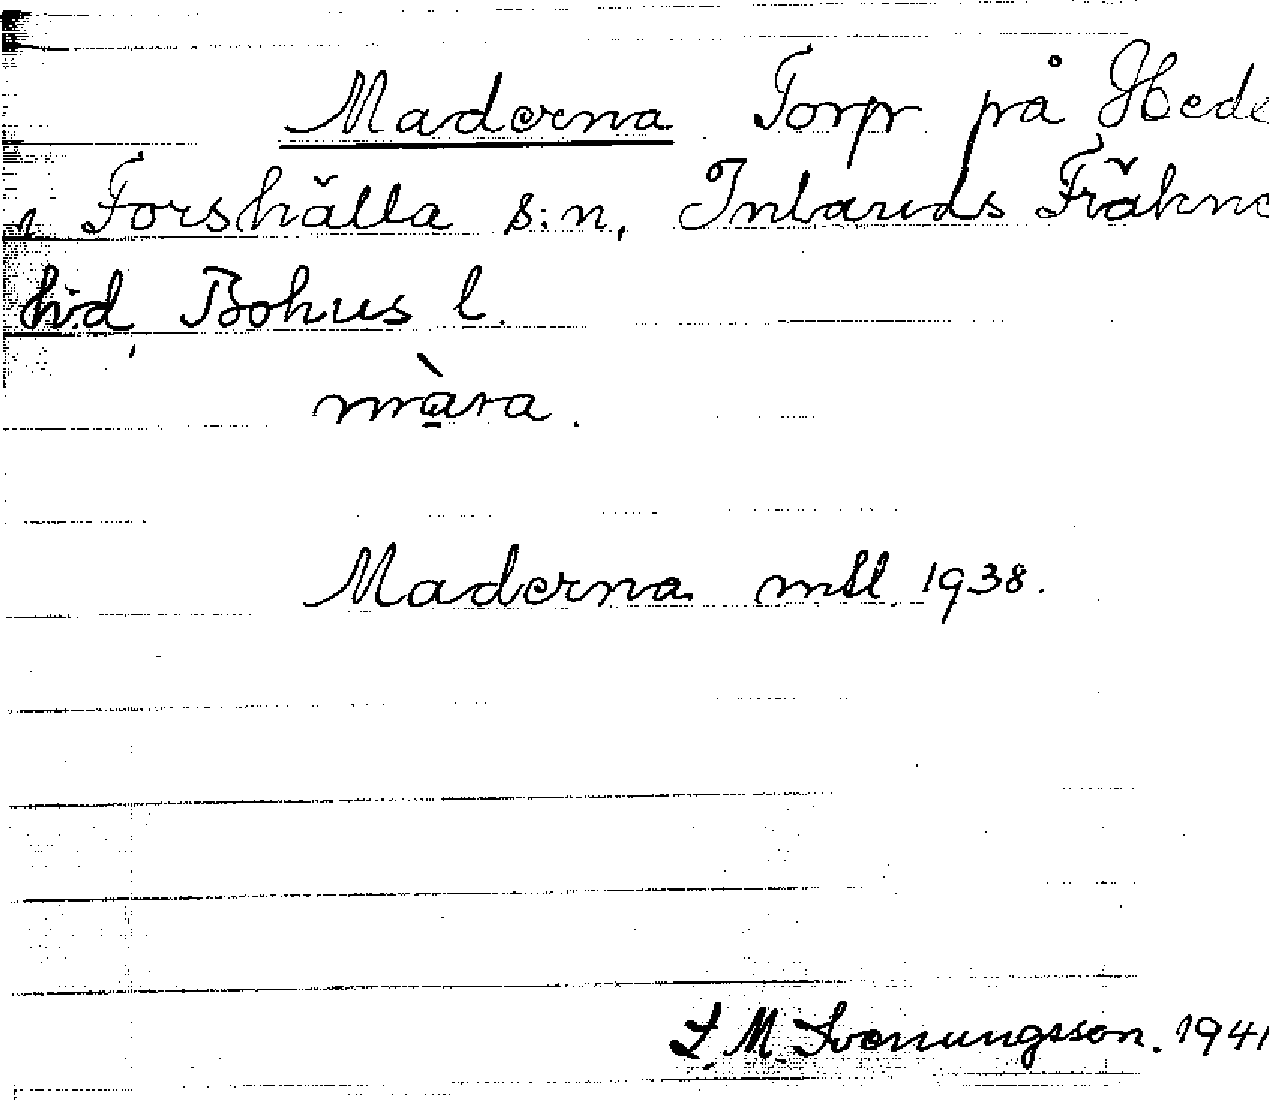 Maderna Torp på Hede
i Forshälla s:n, Inlands Fräkne
h:d, Bohus l.
màra.
Maderna msl 1938.
S. M. Svenungsson. 1941